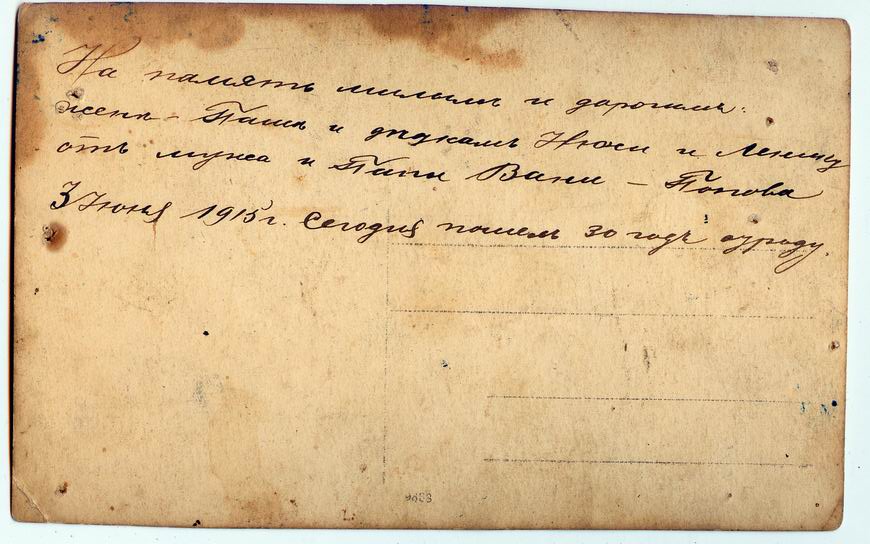 На память милымъ и дорогимъ:
женѣ - Пашѣ и дѣдкамъ Нюси и
отъ мужа и Папи Вани - Попова
3 Июня 1915 г. Сегодня пошелъ 30 годъ
9633